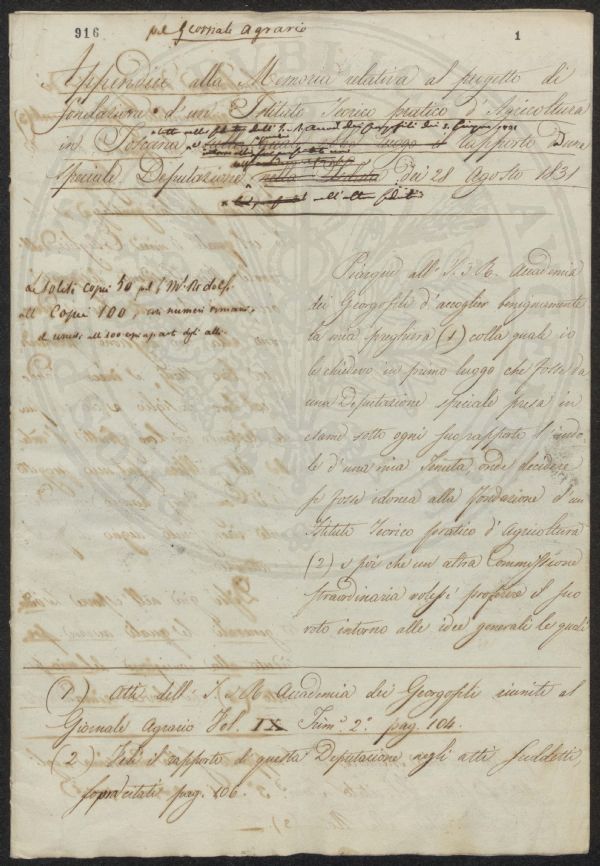 916
pel Giornale Agrario
1
Appendice alla Memoria relativa al progetto di
fondazione d'un Istituto Teorico pratico d'Agricoltura
letta nell' dell' I. R. Accad. dei Georgofili dei 5. Giugno 1831
in Toscana al rapporto d'una
speciale Deputazione dei 28 Agosto 1831
nell'altra
Soliti copie 50 pel Ridolfi
Copie 100, con numeri romani,
e uniti, all 100 copie a part degli atti.
Piacque all' I. e R. Accademia
dei Georgofili d'accoglier benignamente
la mia preghiera (1) colla quale io
le chiedevo in primo luogo che fosse da
una Deputazione speciale presa in
esame sotto ogni suo rapporto l'indo
le d'una mia Tenuta onde decidere
se fosse idonea alla fondazione d'un
Istituto Teorico pratico d'Agricoltura
(2) e poi che un altra Commissione
straordinaria volesse proferire il suo
voto intorno alle idee generali le quali
(1) Atti dell' I. e R. Accademia dei Georgofili riuniti al
Giornale Agrario Vol. IX Trim.e 2.o pag. 104.
(2) Vedi il rapporto di questa Deputazione negli atti suddetti,
sopracitati pag. 106.